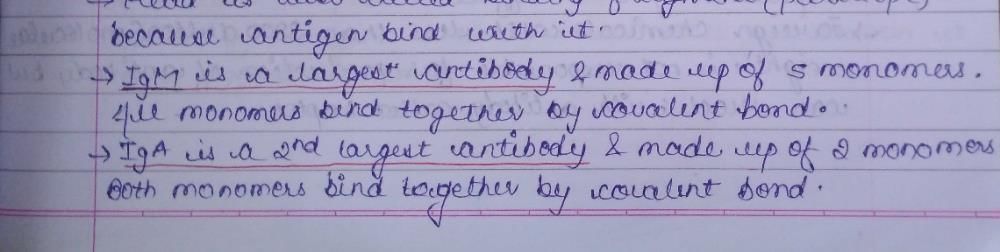 because antigen bind with it.
→ IgM is a largest antibody & made up of 5 monomers.
All monomers bind together by covalent bond.
→ IgA is a 2nd largest antibody & made up of 2 monomers
Both monomers bind together by covalent bond.